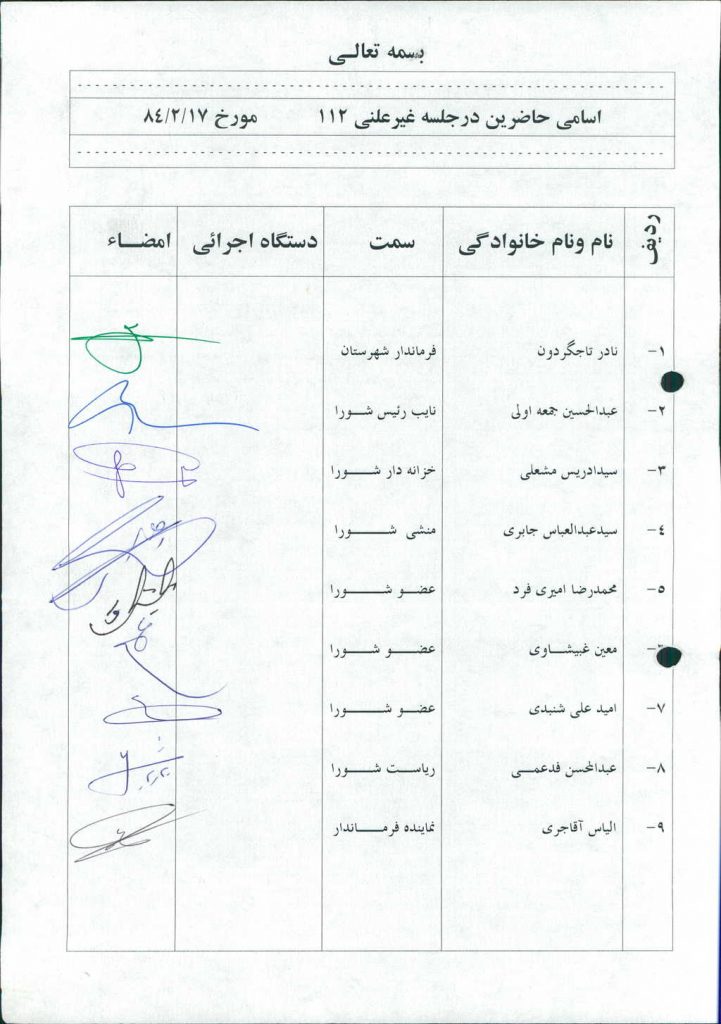 بسمه تعالـی
اسامی حاضرین درجلسه غیرعلنی ۱۱۲ مورخ ۸٤/۲/۱۷
ردیف نام ونام خانوادگی سمت دستگاه اجرائی امضــاء
۱- نادر تاجگردون فرماندار شهرستان
۲- عبدالحسین جمعه اولی نایب رئیس شــورا
۳- سیدادریس مشعلی خزانه دار شــورا
٤- سیدعبدالعباس جابری منشی شــورا
۵- محمدرضا امیری فرد عضـو شــورا
معین غبیشـاوی عضـو شــورا
۷- امید علی شنبدی عضـو شــورا
۸- عبدالمحسن فدعمـی ریاست شــورا
۹- الیاس آقاجری نماینده فرمـاندار